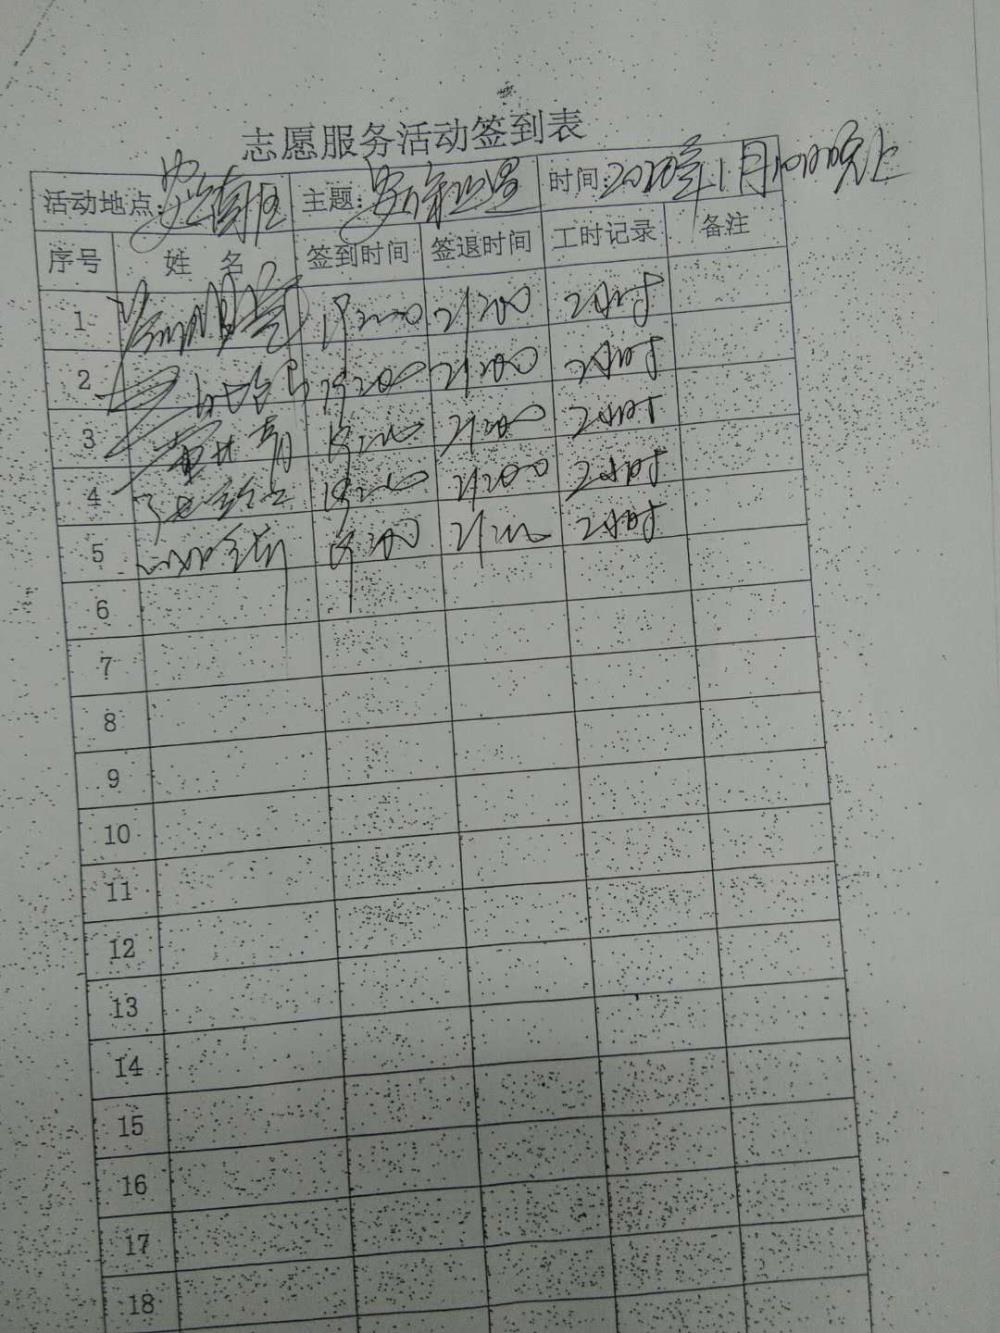 志愿服务活动签到表
活动地点: 主题: 时间: 2020年1月10日晚上
序号 姓 名 签到时间 签退时间 工时记录 备注
1 19:00 21:00 2小时
2 19:00 21:00 2小时
3 19:00 21:00 2小时
4 19:00 21:00 2小时
5 19:00 21:00 2小时
6
7
8
9
10
11
12
13
14
15
16
17
18